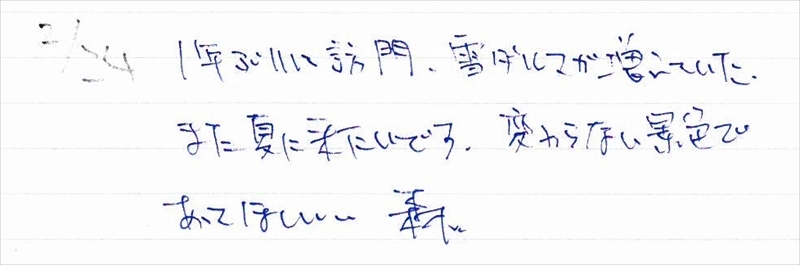 2/24 1年ぶりに訪問、雪ダルマが増えていた。
また夏に来たいです。変わらない景色で
あってほしい